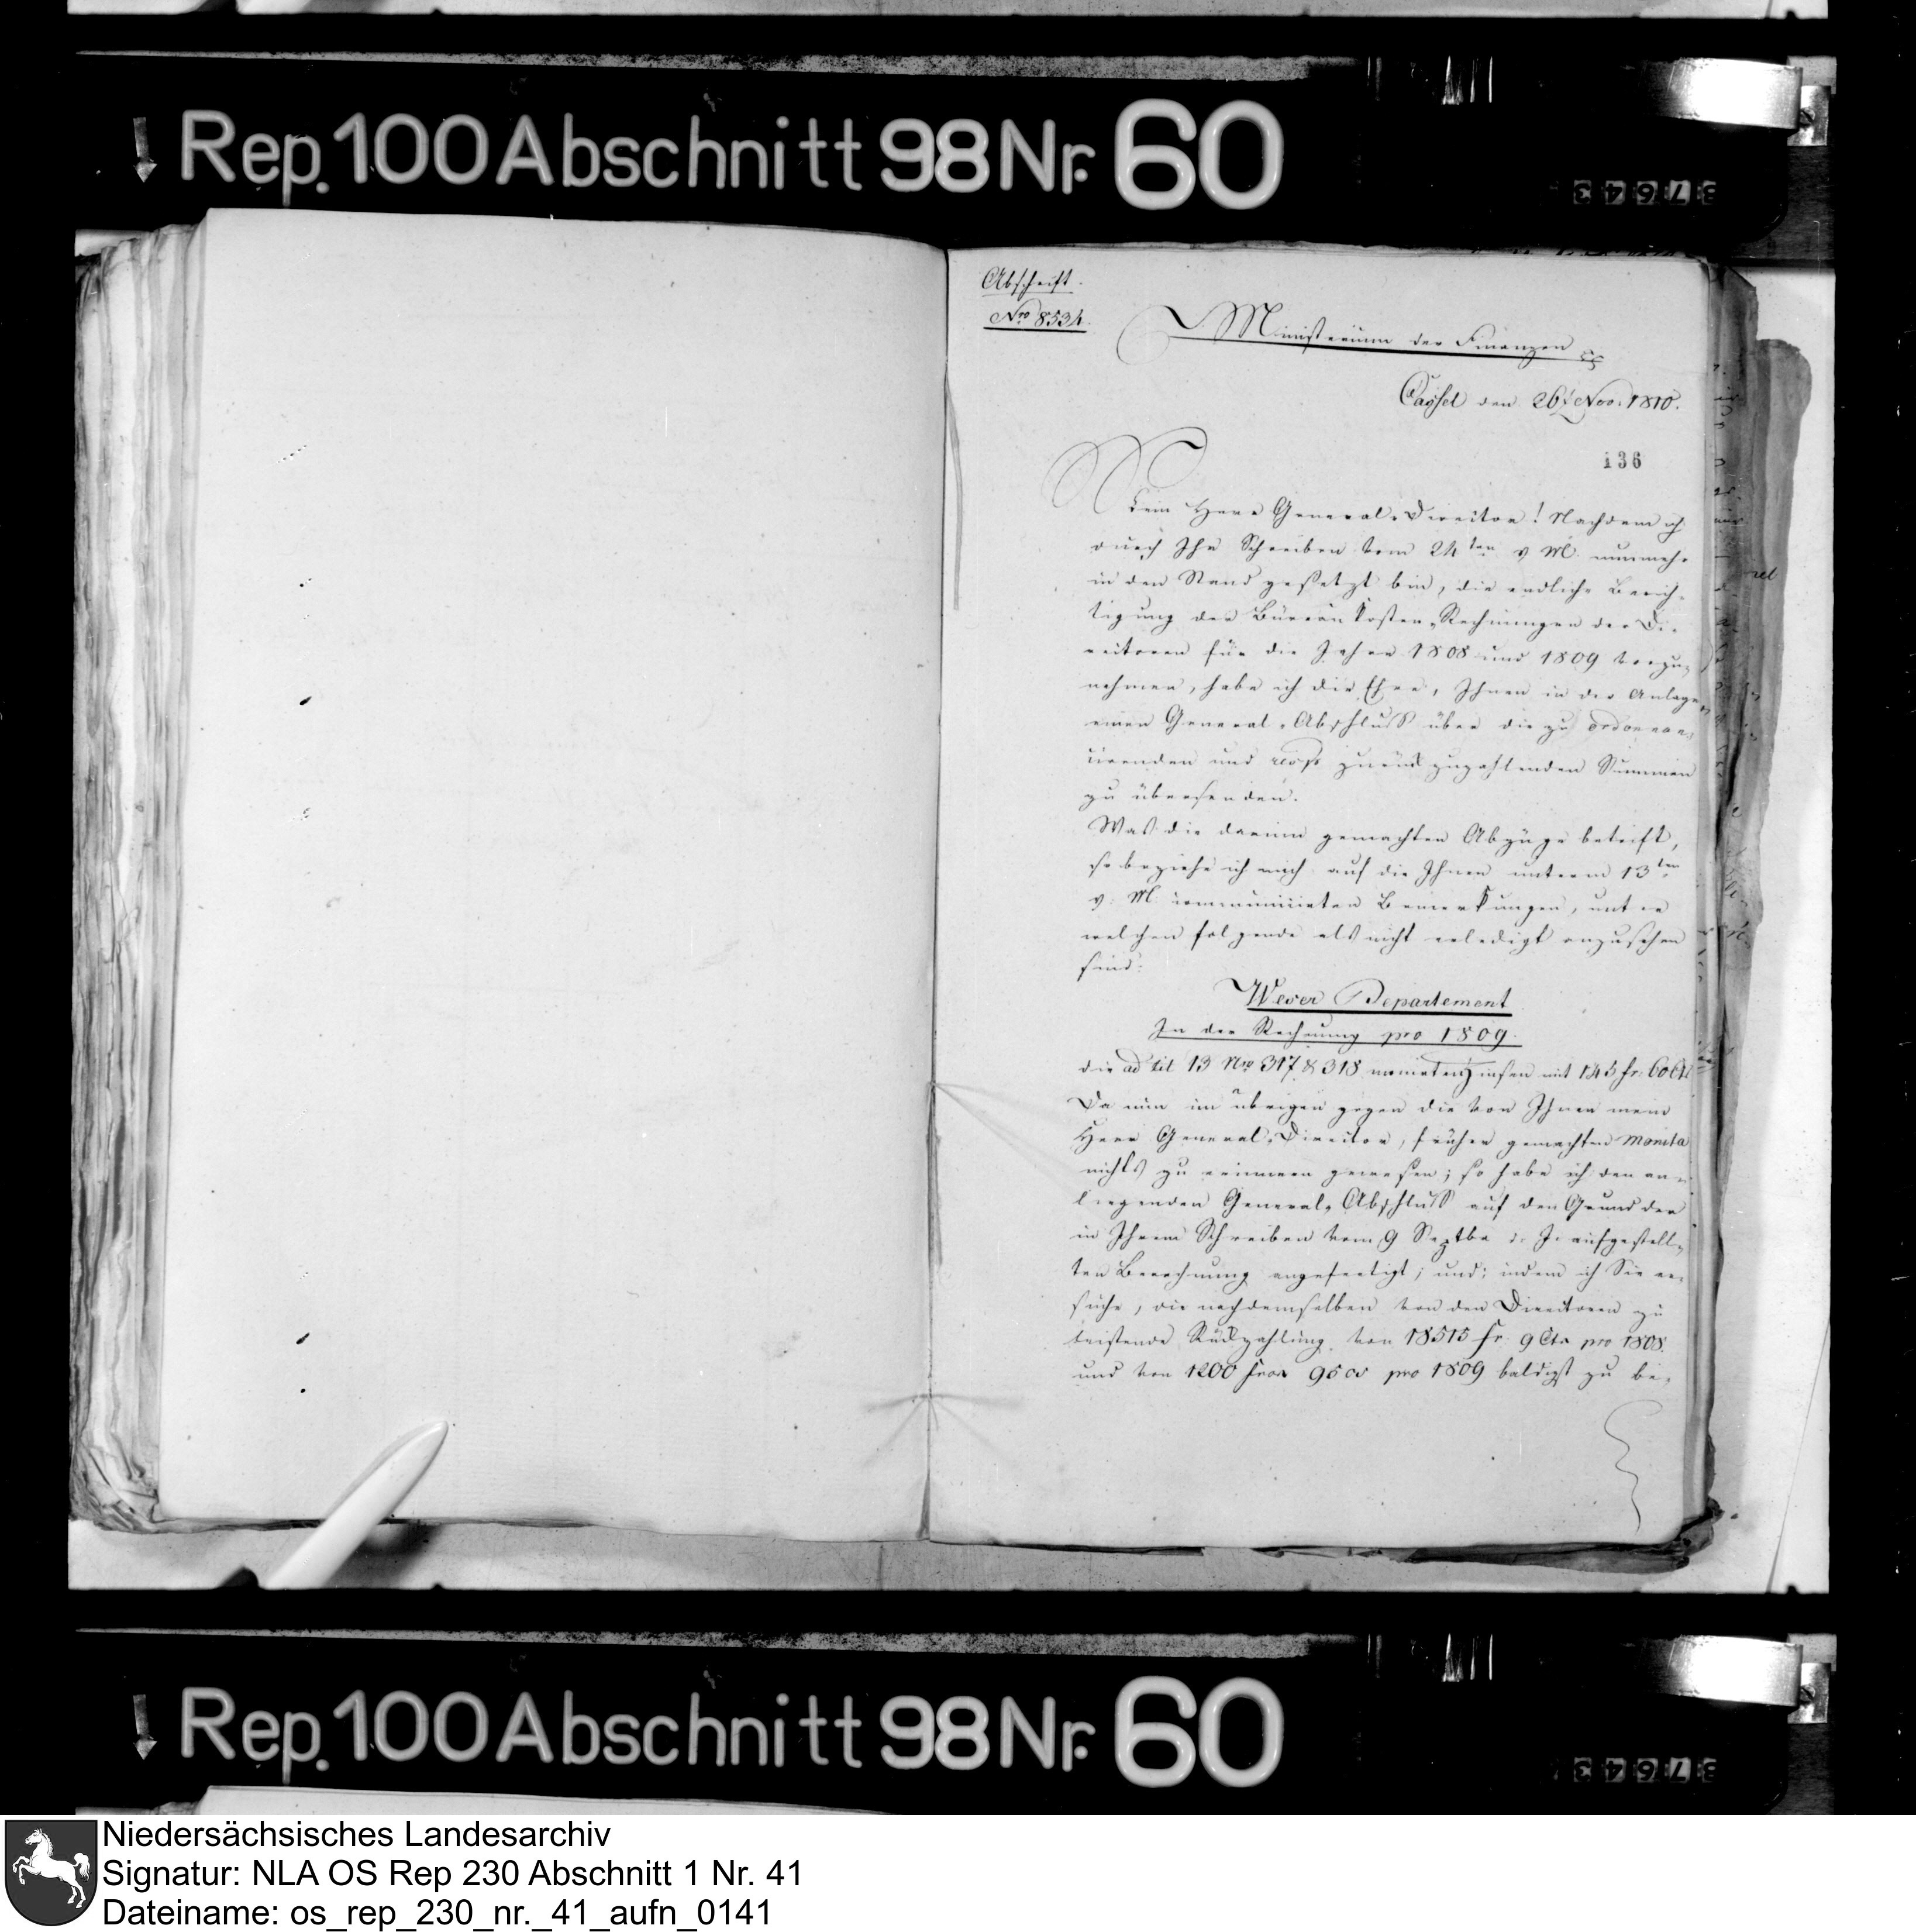 Rep. 100 Abschnitt 98 Nr. 60
37643
Abschrift.
Nro 8534.
Ministerium der Finanzen
Cassel den 26t Nov. 1810.
136
Mein Herr General-Director! Nachdem ich
durch Ihr Schreiben vom 24ten v. M. nunmehr
in den Stand gesetzt bin, die endliche Berich-
tigung der Büreaukosten-Rechnungen der Di-
rectoren für die Jahre 1808 und 1809 vorzu-
nehmen, habe ich die Ehre, Ihnen in der Anlage
einen General-Abschluß über die zu ordonnan-
cirenden und resp. zurückzuzahlenden Summen
zu übersenden.
Was die darinn gemachten Abzüge betrift,
so beziehe ich mich auf die Ihnen unterm 13ten
v. M. communicirten Bemerkungen, unter
welchen folgende als nicht erledigt anzusehen
sind:
Weser Departement
In der Rechnung pro 1809.
die ad tit 13 Nro 317 & 318 Zinsen mit 145 fr: 60
Da nun im übrigen gegen die von Ihnen mein
Herr General-Director, früher gemachten Monita
nichts zu erinnern gewesen; so habe ich den an-
liegenden General-Abschluß auf den Grund der
in Ihrem Schreiben vom 9 Septbr d. J. aufgestell-
ten Berechnung angefertigt; und; indem ich Sie er-
suche, die nach demselben von den Directoren zu
leistende Rückzahlung von 18515 fr. 9 Cts pro 1808.
und von 1200 fran 96 pro 1809 baldigst zu be-
Rep. 100 Abschnitt 98 Nr. 60
37643
Niedersächsisches Landesarchiv
Signatur: NLA OS Rep 230 Abschnitt 1 Nr. 41
Dateiname: os_rep_230_nr._41_aufn_0141